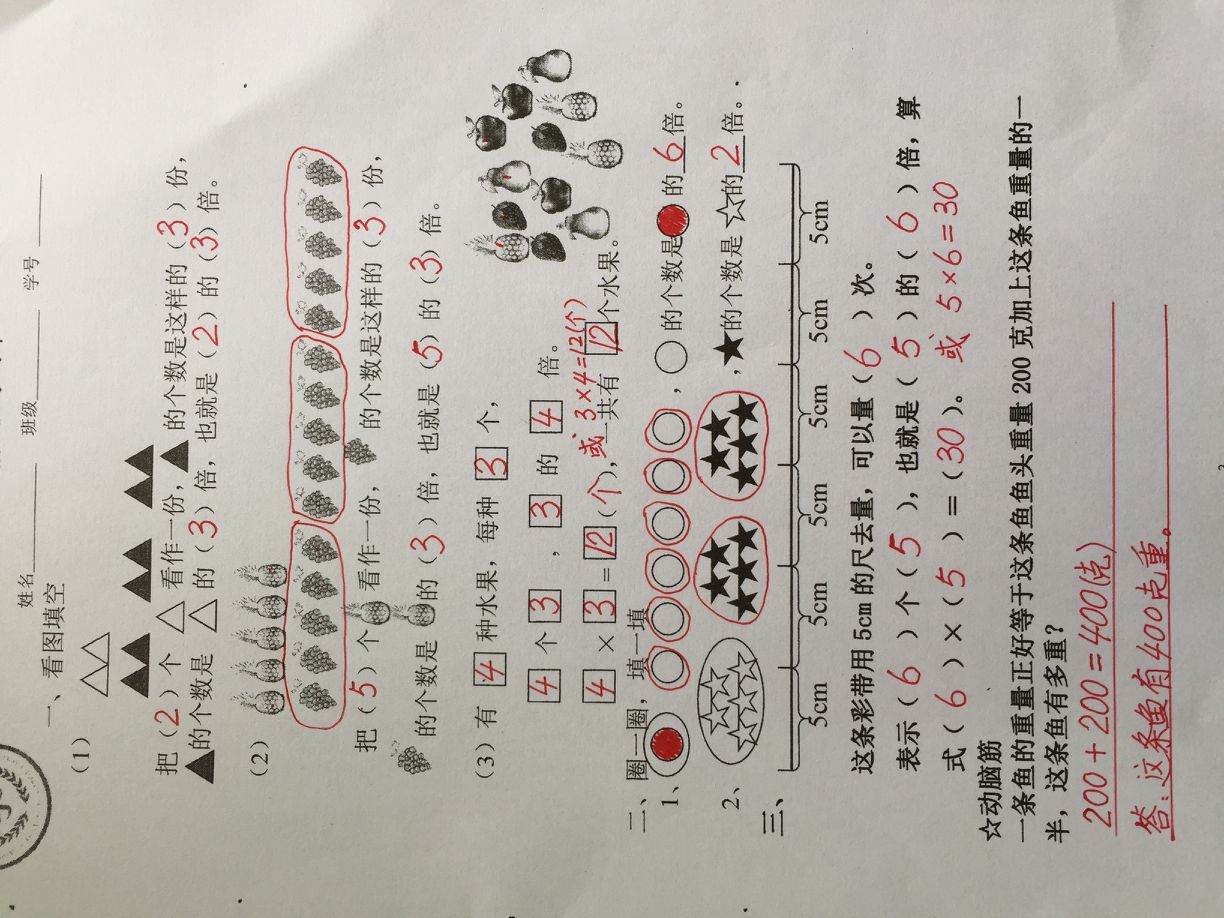 姓名__________ 班级__________ 学号________
一、看图填空
（1）
把（2）个△看作一份，▲的个数是这样的（3）份，
▲的个数是△的（3）倍，也就是（2）的（3）倍。
（2）
把（5）个看作一份，的个数是这样的（3）份，
的个数是的（3）倍，也就是（5）的（3）倍。
（3）有4种水果，每种3个，
4个3，3的4倍。
或 3×4=12(个)
4×3=12（个），一共有12个水果。
二、圈一圈，填一填
1、，○的个数是●的6倍。
2、，★的个数是☆的2倍。
三、
5cm 5cm 5cm 5cm 5cm 5cm
这条彩带用5cm的尺去量，可以量（6）次。
表示（6）个（5），也就是（5）的（6）倍，算
式（6）×（5）＝（30）。或 5×6=30
☆动脑筋
一条鱼的重量正好等于这条鱼鱼头重量200克加上这条鱼重量的一
半，这条鱼有多重？
200+200=400(克)
答：这条鱼有400克重。